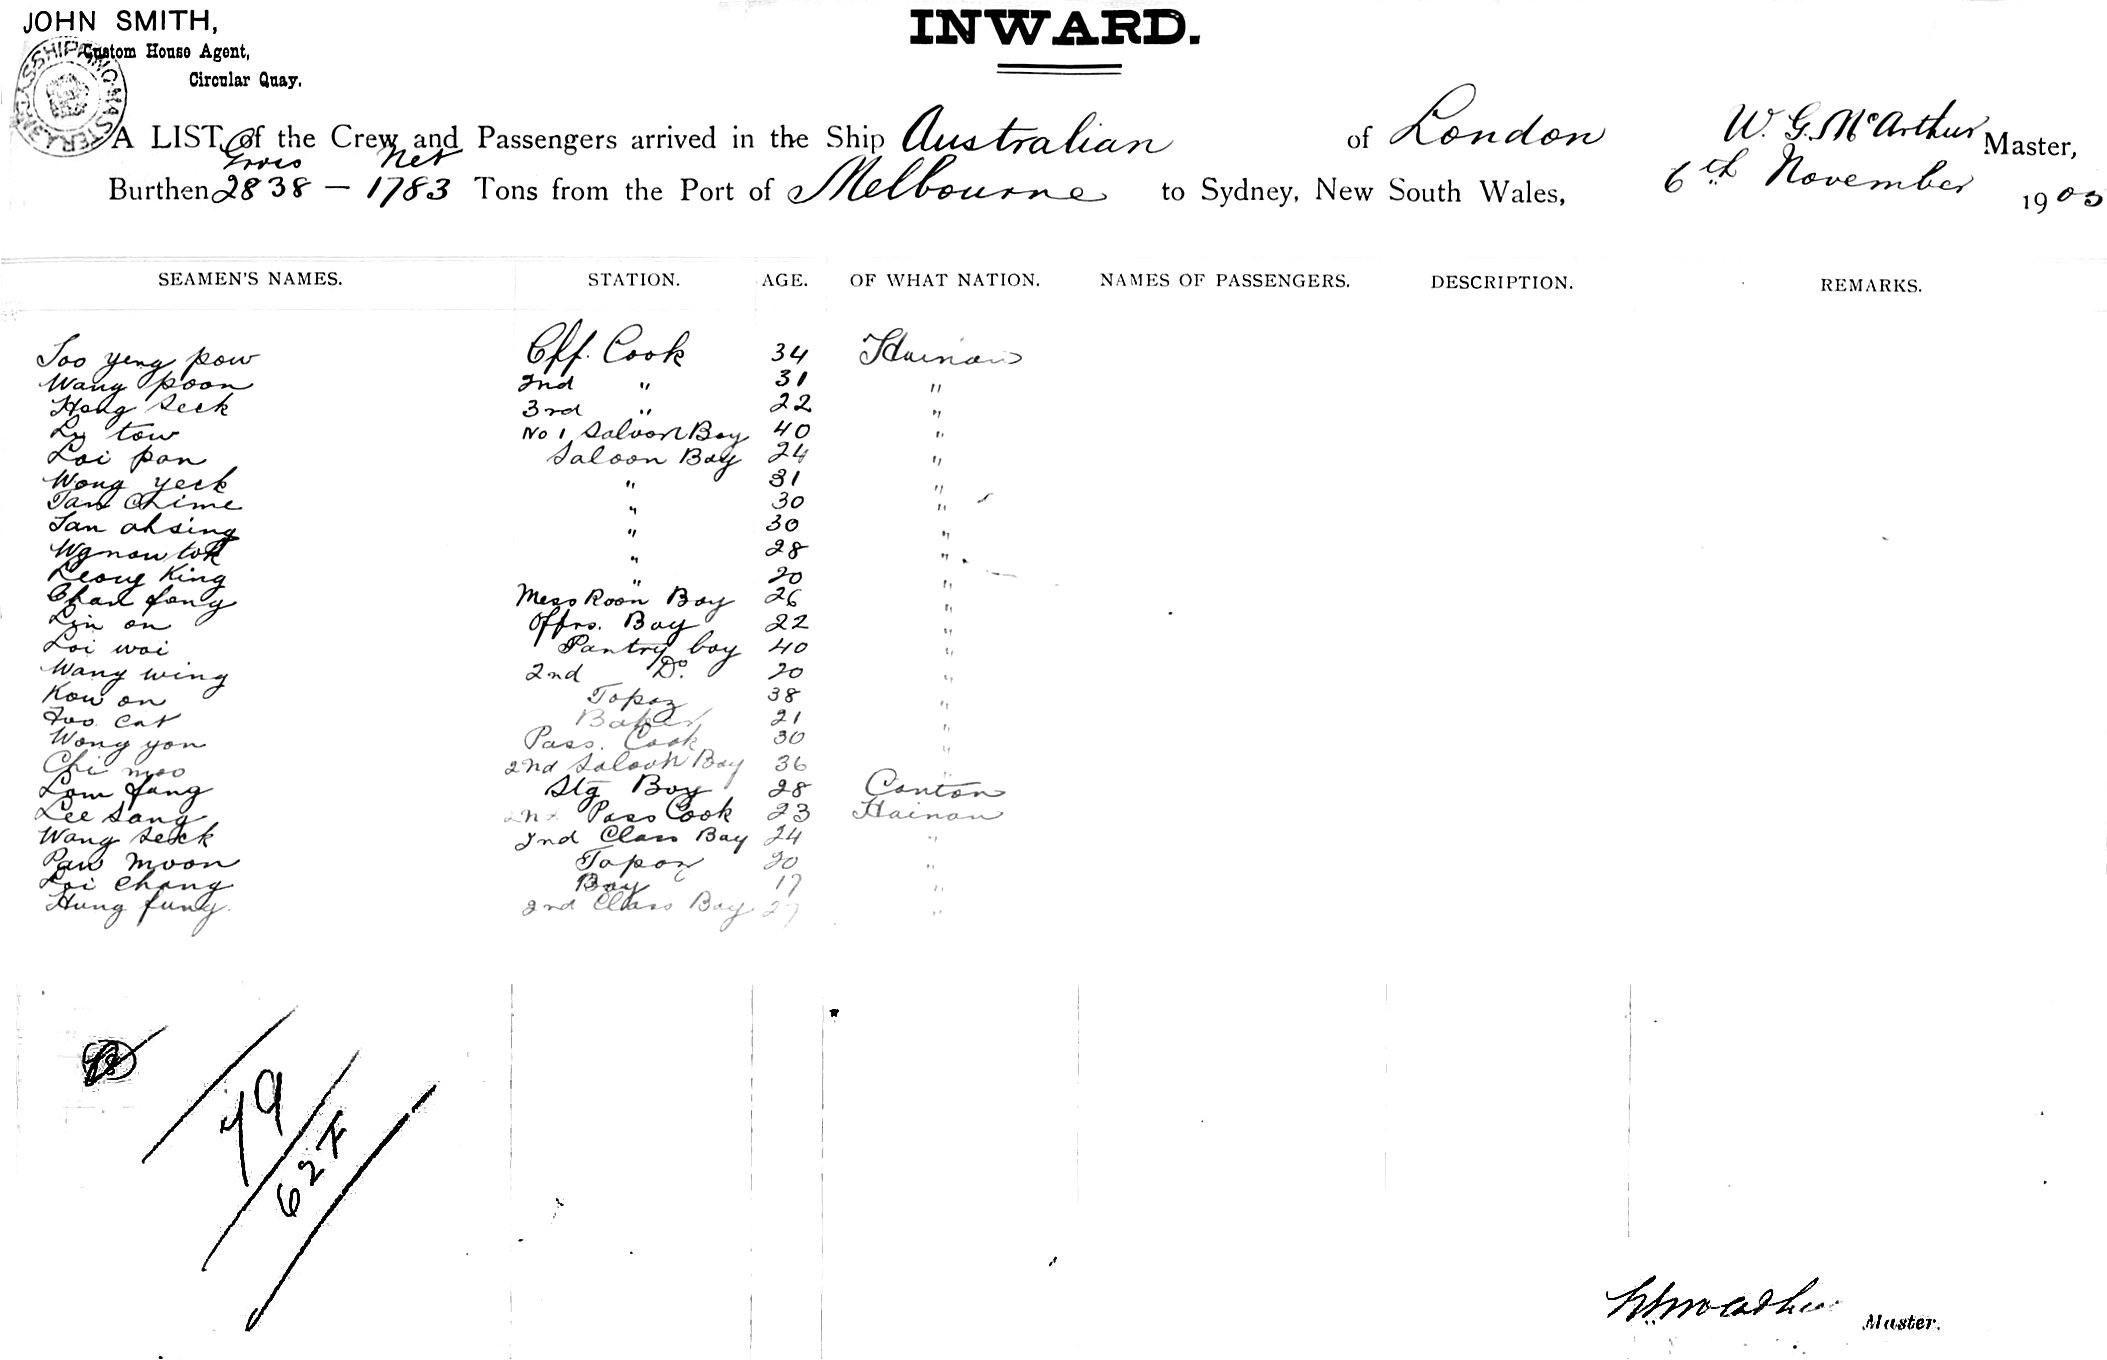 JOHN SMITH,
Custom House Agent,
Circular Quay.
INWARD.
A LIST of the Crew and Passengers arrived in the Ship Australian of London W. G. McArthur Master,
Gross Net
Burthen 2838 — 1783 Tons from the Port of Melbourne to Sydney, New South Wales, 6th November 1903
SEAMEN'S NAMES. STATION. AGE. OF WHAT NATION. NAMES OF PASSENGERS. DESCRIPTION. REMARKS.
Soo yeng pow Cff. Cook 34 Hainan
Wang poon 2nd " 31 "
Hong Seck 3rd " 22 "
Ly tow No 1 Saloon Boy 40 "
Loi pan Saloon Boy 24 "
Wong yeck " 31 "
Tan Chime " 30 "
Tan ahsing " 30 "
" 28 "
Leong King " 20 "
Chan fong Mess Room Boy 26 "
Lin on Offrs. Boy 22 "
Loi woi Pantry boy 40 "
Wang wing 2nd Do. 20 "
Kow on Topaz 38 "
Foo Cat Baker 21 "
Wong yon Pass. Cook 30 "
Chi moo 2nd Saloon Boy 36 "
Lom fong Stg Boy 28 Canton
Lee Sang 2nd Pass Cook 23 Hainan
Wang Seck 2nd Class Boy 24 "
Paw Moon Topaz 20 "
Loi Chong Boy 17 "
Hung fung. 2nd Class Boy 27 "
79
62 F
Master.